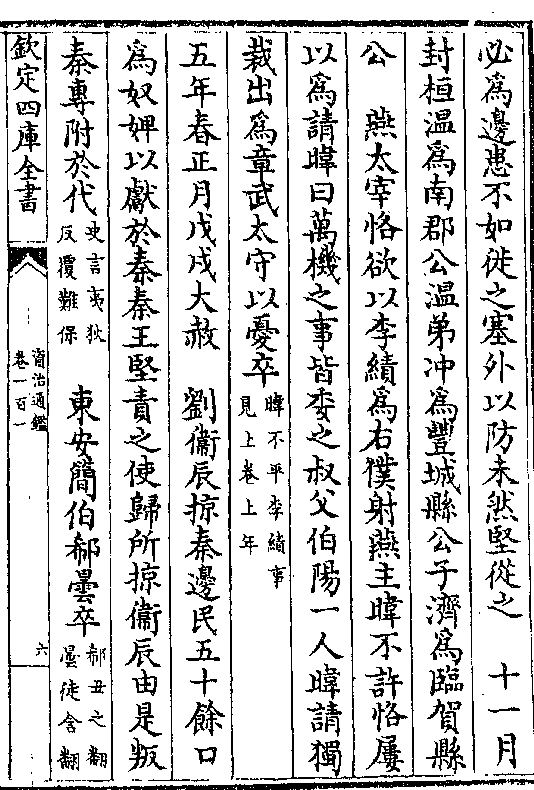 必為邊患不如徙之塞外以防未然堅從之　十一月
封桓温為南郡公温弟冲為豐城縣公子濟為臨賀縣
公　燕太宰恪欲以李績為右僕射燕主暐不許恪屢
以為請暐曰萬機之事皆委之叔父伯陽一人暐請獨
裁出為章武太守以憂卒暐不平李績事見上卷上年
五年春正月戊戌大赦　劉衞辰掠秦邊民五十餘口
為奴婢以獻於秦秦王堅責之使歸所掠衞辰由是叛
秦專附於代史言夷狄反覆難保　東安簡伯郗曇卒郗丑之翻曇徒含翻
欽定四庫全書
資治通鑑
卷一百一
六